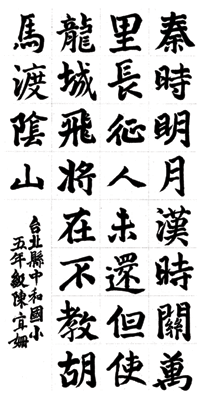 秦時明月漢時關萬
里長征人未還但使
龍城飛將在不教胡
馬渡陰山
台北縣中和國小
五年級陳宜姍